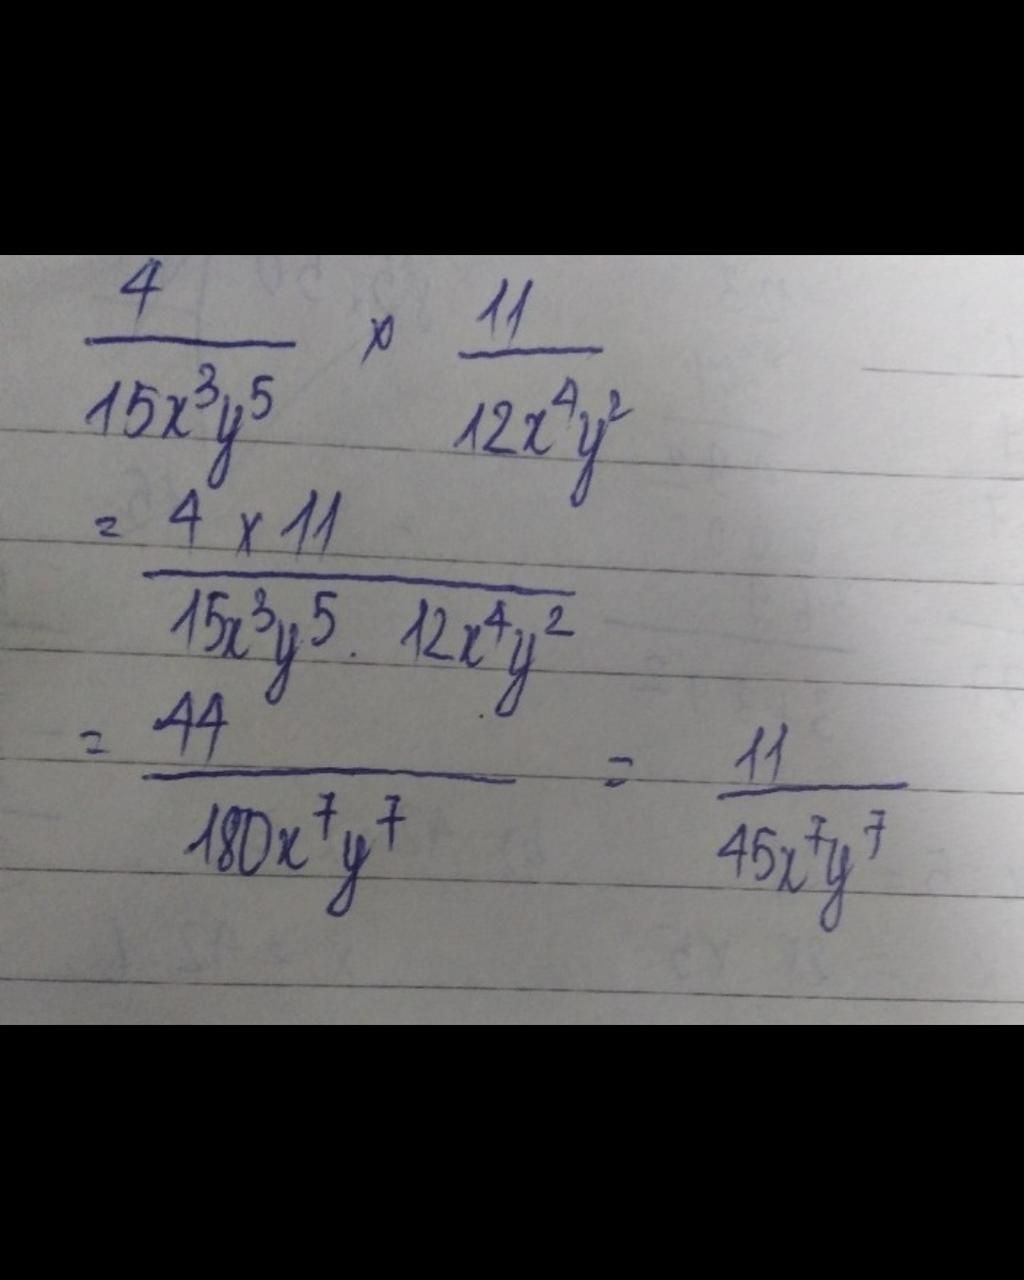 4/15x³y⁵ x 11/12x⁴y²
= 4 x 11/15x³y⁵ . 12x⁴y²
= 44/180x⁷y⁷ = 11/45x⁷y⁷